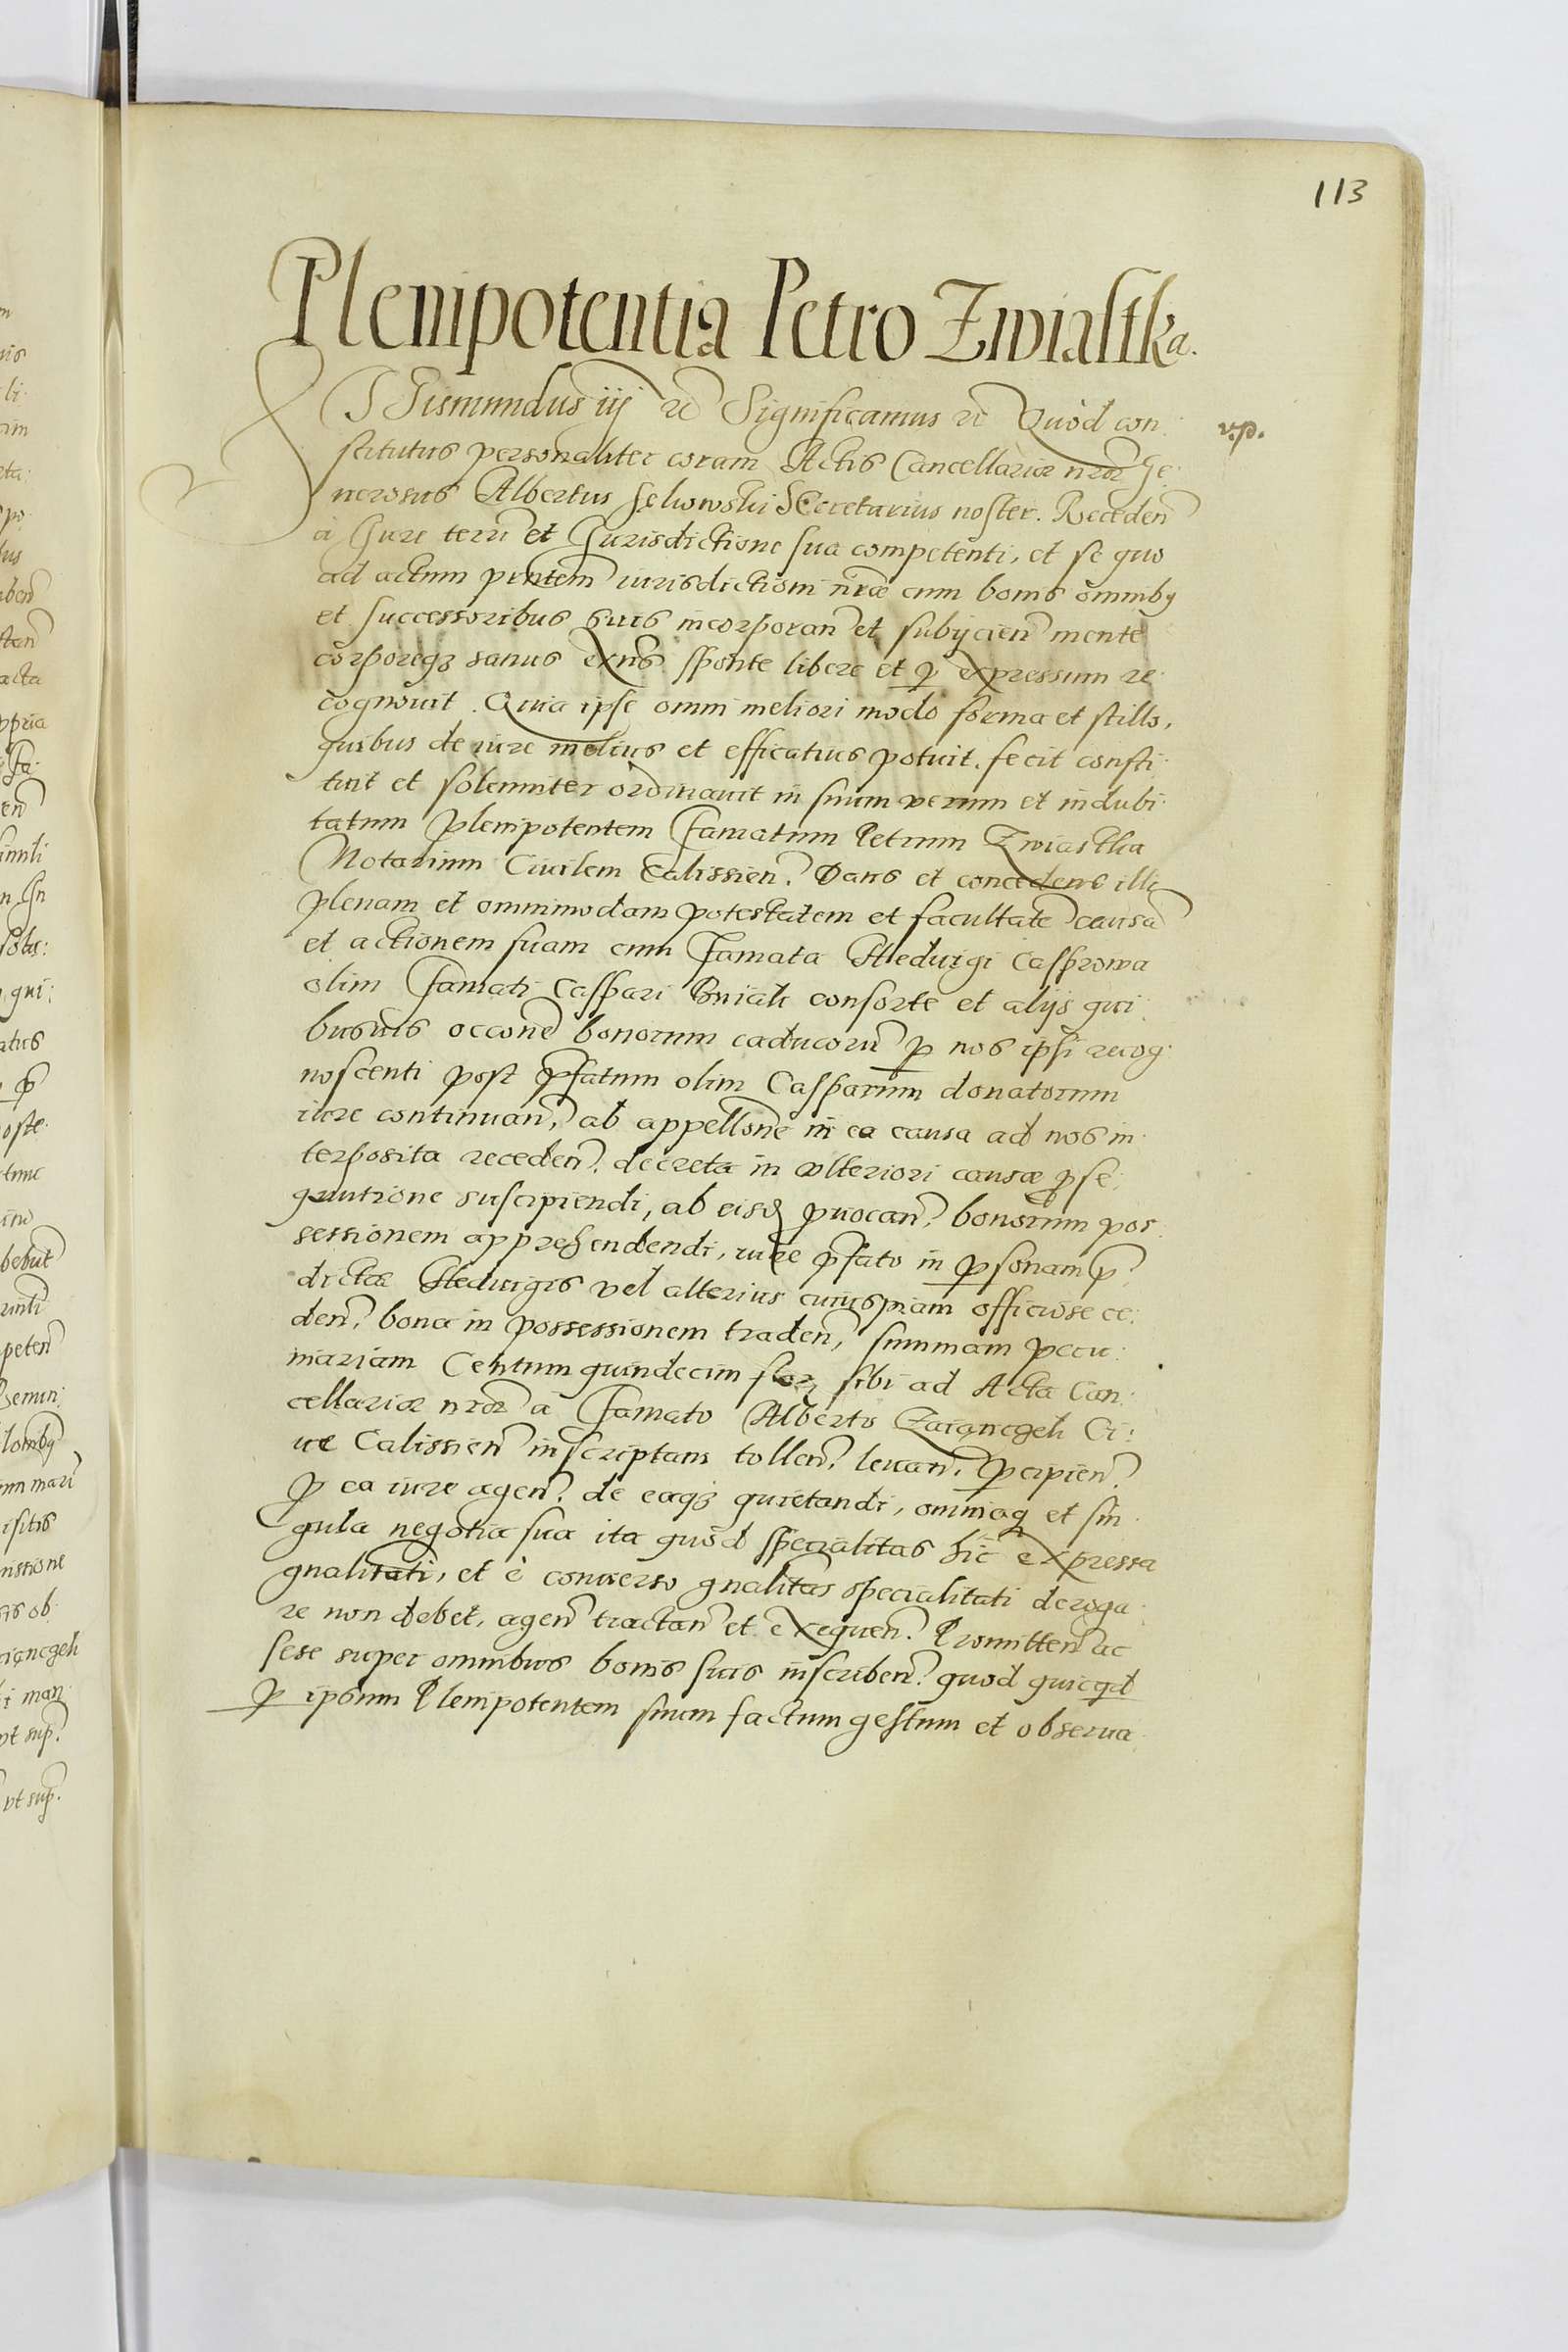 113
Plenipotentia Petro Zwiastka.
SIGismundus iij rc Significamus rc Quod con:
v.p.
stitutus personaliter coram Actis Cancellariæ nræ Ge:
nerosus Albertus Secretarius noster. Receden
à Iure terri et Iurisdictione sua competenti, et se quo
ad actum pntem iurisdictioni nræ cum bonis omnibq
et successoribus suis incorporan et subijcien mente
corporeq3 sanus exns sponte libere et p expressum re:
cognovit. Quia ipse omni meliori modo forma et stillo,
quibus de iure melius et efficatius potuit. fecit consti:
tuit et solenniter ordinavit in suum verum et indubi:
tatum Plenipotentem famatum Petrum Zwiastka
Notarium Civilem Calissien. Dans et concedens illi
plenam et omnimodam potestatem et facultate causa
et actionem suam cum famata Heduigi Casprowa
olim famati Caspari consorte et alijs qui:
busvis occone bonorum caducoru p nos ipsi recog:
noscenti post pfatum olim Casparum donatorum
iure continuan, ab appellone in ea causa ad nos in:
terposita receden. decreta in ulteriori causæ pse:
quutione suscipiendi, ab eisd pvocan, bonorum pos:
sessionem apprehendendi, iure pfato in psonam p
dictæ Heduigis vel alterius cuiuspiam officiose ce:
den. bona in possessionem traden, summam pecu:
niariam Centum quindecim flor sibi ad Acta Can:
cellariæ nræ à famato Alberto Zaiąncgek Ci:
ve Calissien inscriptam tollen. levan. pcipien.
p ea iure agen. de eaq3 quietandi, omniaq et sin:
gula negotia sua ita quòd specialitas hic expressa
gnalitati, et è converso gnalitas specialitati deroga:
re non debet, agen tractan et exequen. Promitten ac
sese super omnibus bonis suis inscriben. quod quicqd
p ipsum Plenipotentem suum factum gestum et observa